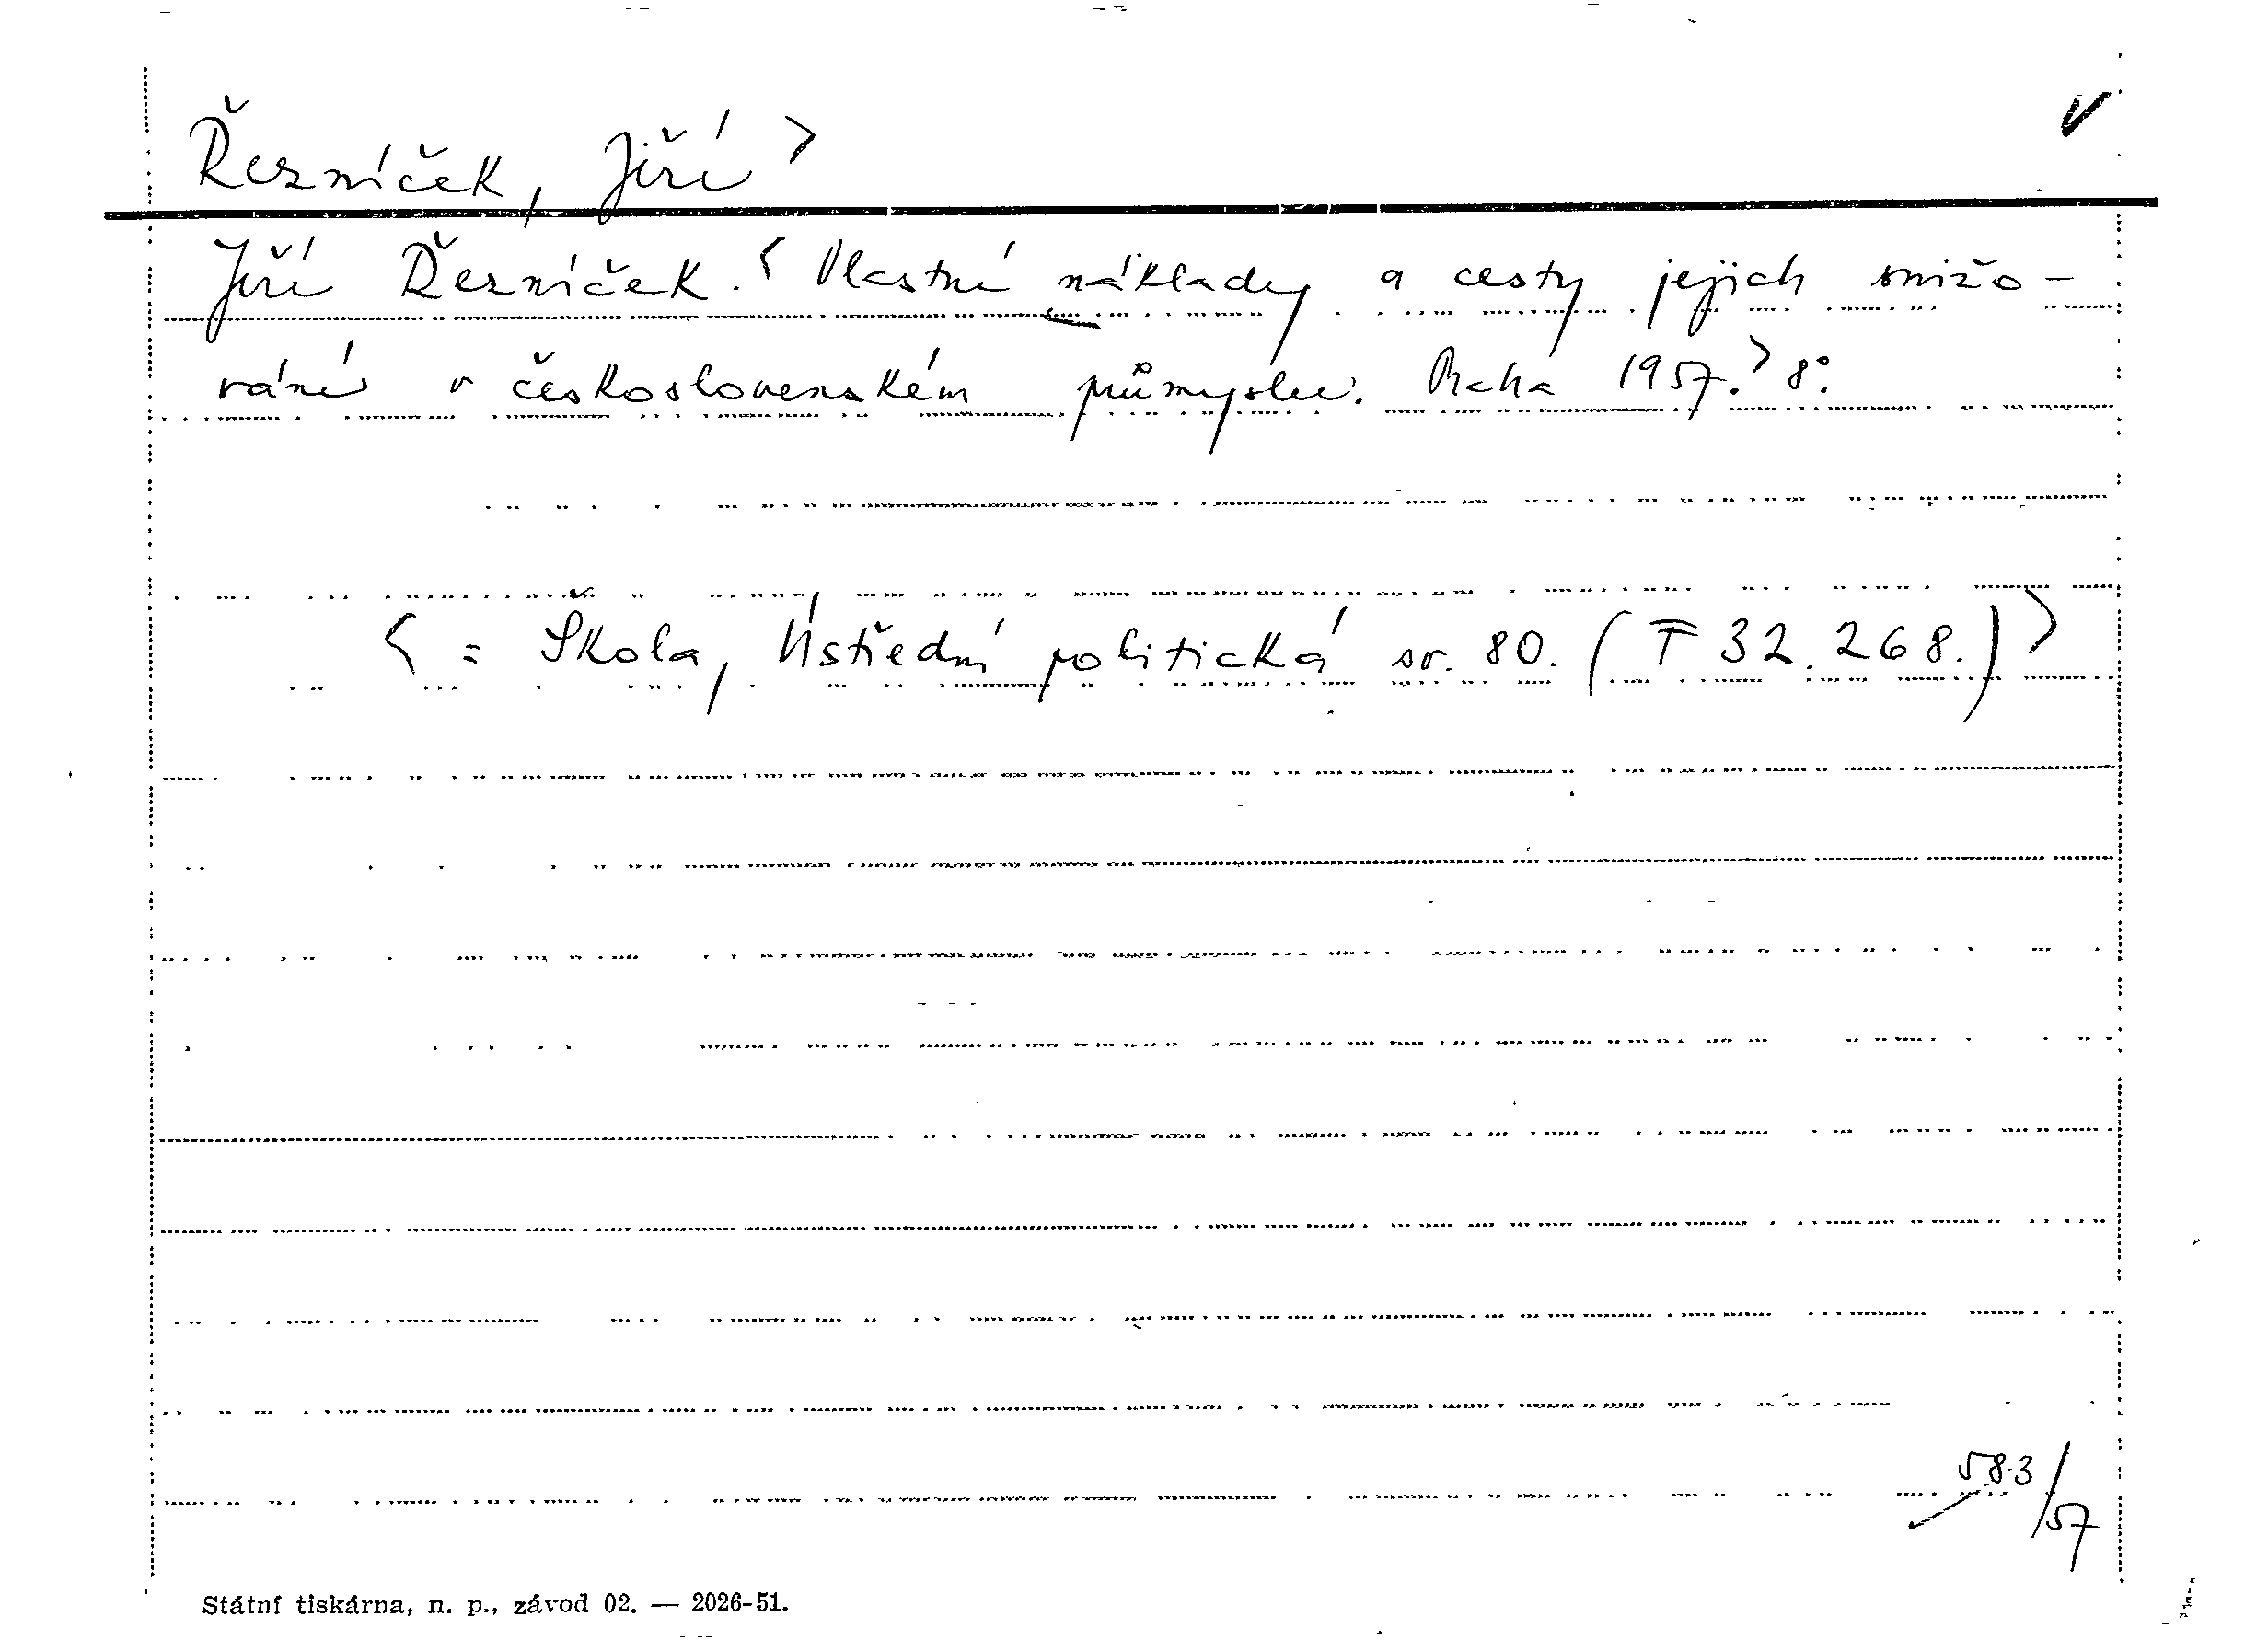 Řezníček, Jiří >
Jiří Řezníček. < Vlastní náklady a cesty jejich snižo-
vání v československém průmyslu. Praha 1957. > 8°.
< = Škola, Ústřední politická sv. 80. (T 32.268.) >
583/57
Státní tiskárna, n. p., závod 02. — 2026-51.